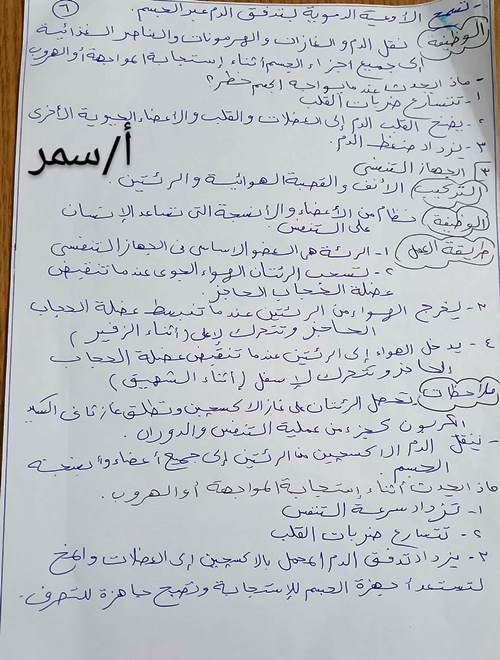 - تسمح الأوعية الدموية بتدفق الدم عبر الجسم. ٦
الوظيفة نقل الدم والغازات والهرمونات والعناصر الغذائية
إلى جميع اجزاء الجسم أثناء إستجابة المواجهة أو الهروب
- ماذا يحدث عندما يواجه الجسم خطر؟
١- تتسارع ضربات القلب
٢- يضخ القلب الدم إلى العضلات والقلب والأعضاء الحيوية الأخرى
٣- يزداد ضغط الدم.
أ/سمر
٣ الجهاز التنفسي
التركيب الأنف والقصبة الهوائية والرئتين.
الوظيفة نظام من الأعضاء والأنسجة التى تساعد الإنسان
على التنفس
طريقة العمل ١- الرئة هى العضو الاساسى فى الجهاز التنفسى
٢- تسحب الرئتان الهواء الجوى عندما تنقبض
عضلة الحجاب الحاجز
٣- يخرج الهواء من الرئتين عندما تنبسط عضلة الحجاب
الحاجز وتتحرك لأعلى (أثناء الزفير)
٤- يدخل الهواء إلى الرئتين عندما تنقبض عضلة الحجاب
الحاجز وتتحرك لإسفل (أثناء الشهيق)
ملاحظات تحصل الرئتان على غاز الاكسجين وتطلق غاز ثانى اكسيد
الكربون كجزء من عملية التنفس والدوران.
- ينقل الدم الاكسجين من الرئتين إلى جميع أعضاء وأنسجة
الجسم
ماذا يحدث أثناء إستجابة المواجهة أو الهروب.
١- تزداد سرعة التنفس
٢- تتسارع ضربات القلب
٣- يزداد تدفق الدم المحمل بالاكسجين إلى العضلات والمخ
لتستعد أجهزة الجسم للإستجابة وتصبح جاهزة للتصرف.